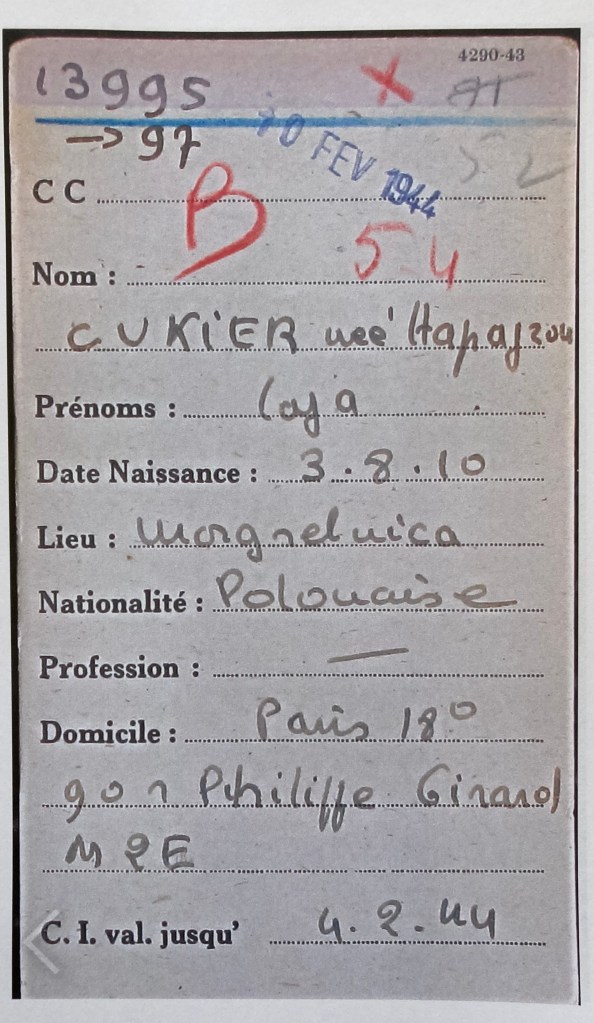 4290-43
13995
→ 97
10 FEV 1944
C C
B
5 4
Nom :
CUKIER née
Prénoms :
Date Naissance : 3.8.10
Lieu :
Nationalité : Polonaise
Profession : —
Domicile : Paris 18°
90 r Philippe Girard
M 2 E
C. I. val. jusqu' 4.2.44